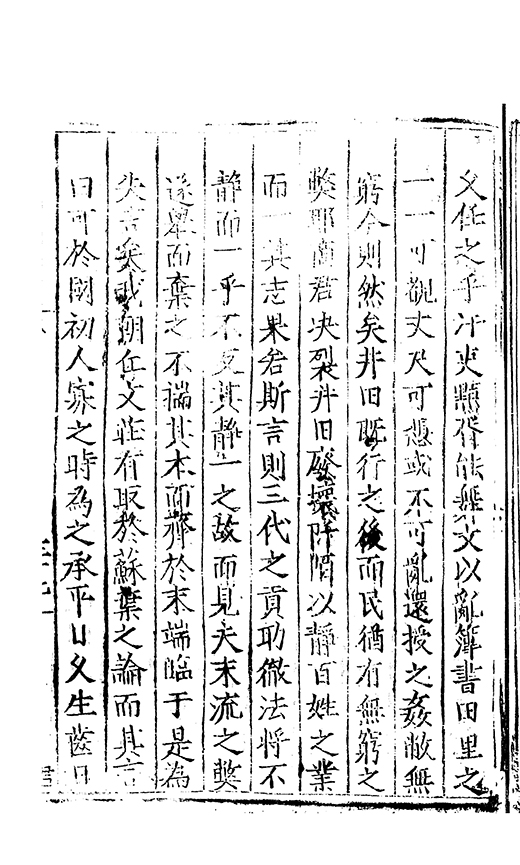 父任之乎汙吏黠胥能無文以亂簿書田里之
一一可觀丈尺可憑或不可亂還授之姦敝無
窮今則然矣井田既行之後而民猶有無窮之
獘耶商君决裂井田廢壞阡陌以静百姓之業
而一其志果若斯言則三代之貢助徹法將不
静而一乎不見其静一之故而見夫末流之獘
遂舉而棄之不揣其本而齊於末端临于是為
失言矣我朝丘文莊有取於蘇葉之論而其言
曰可於國初人寡之時為之承平日久生齒日